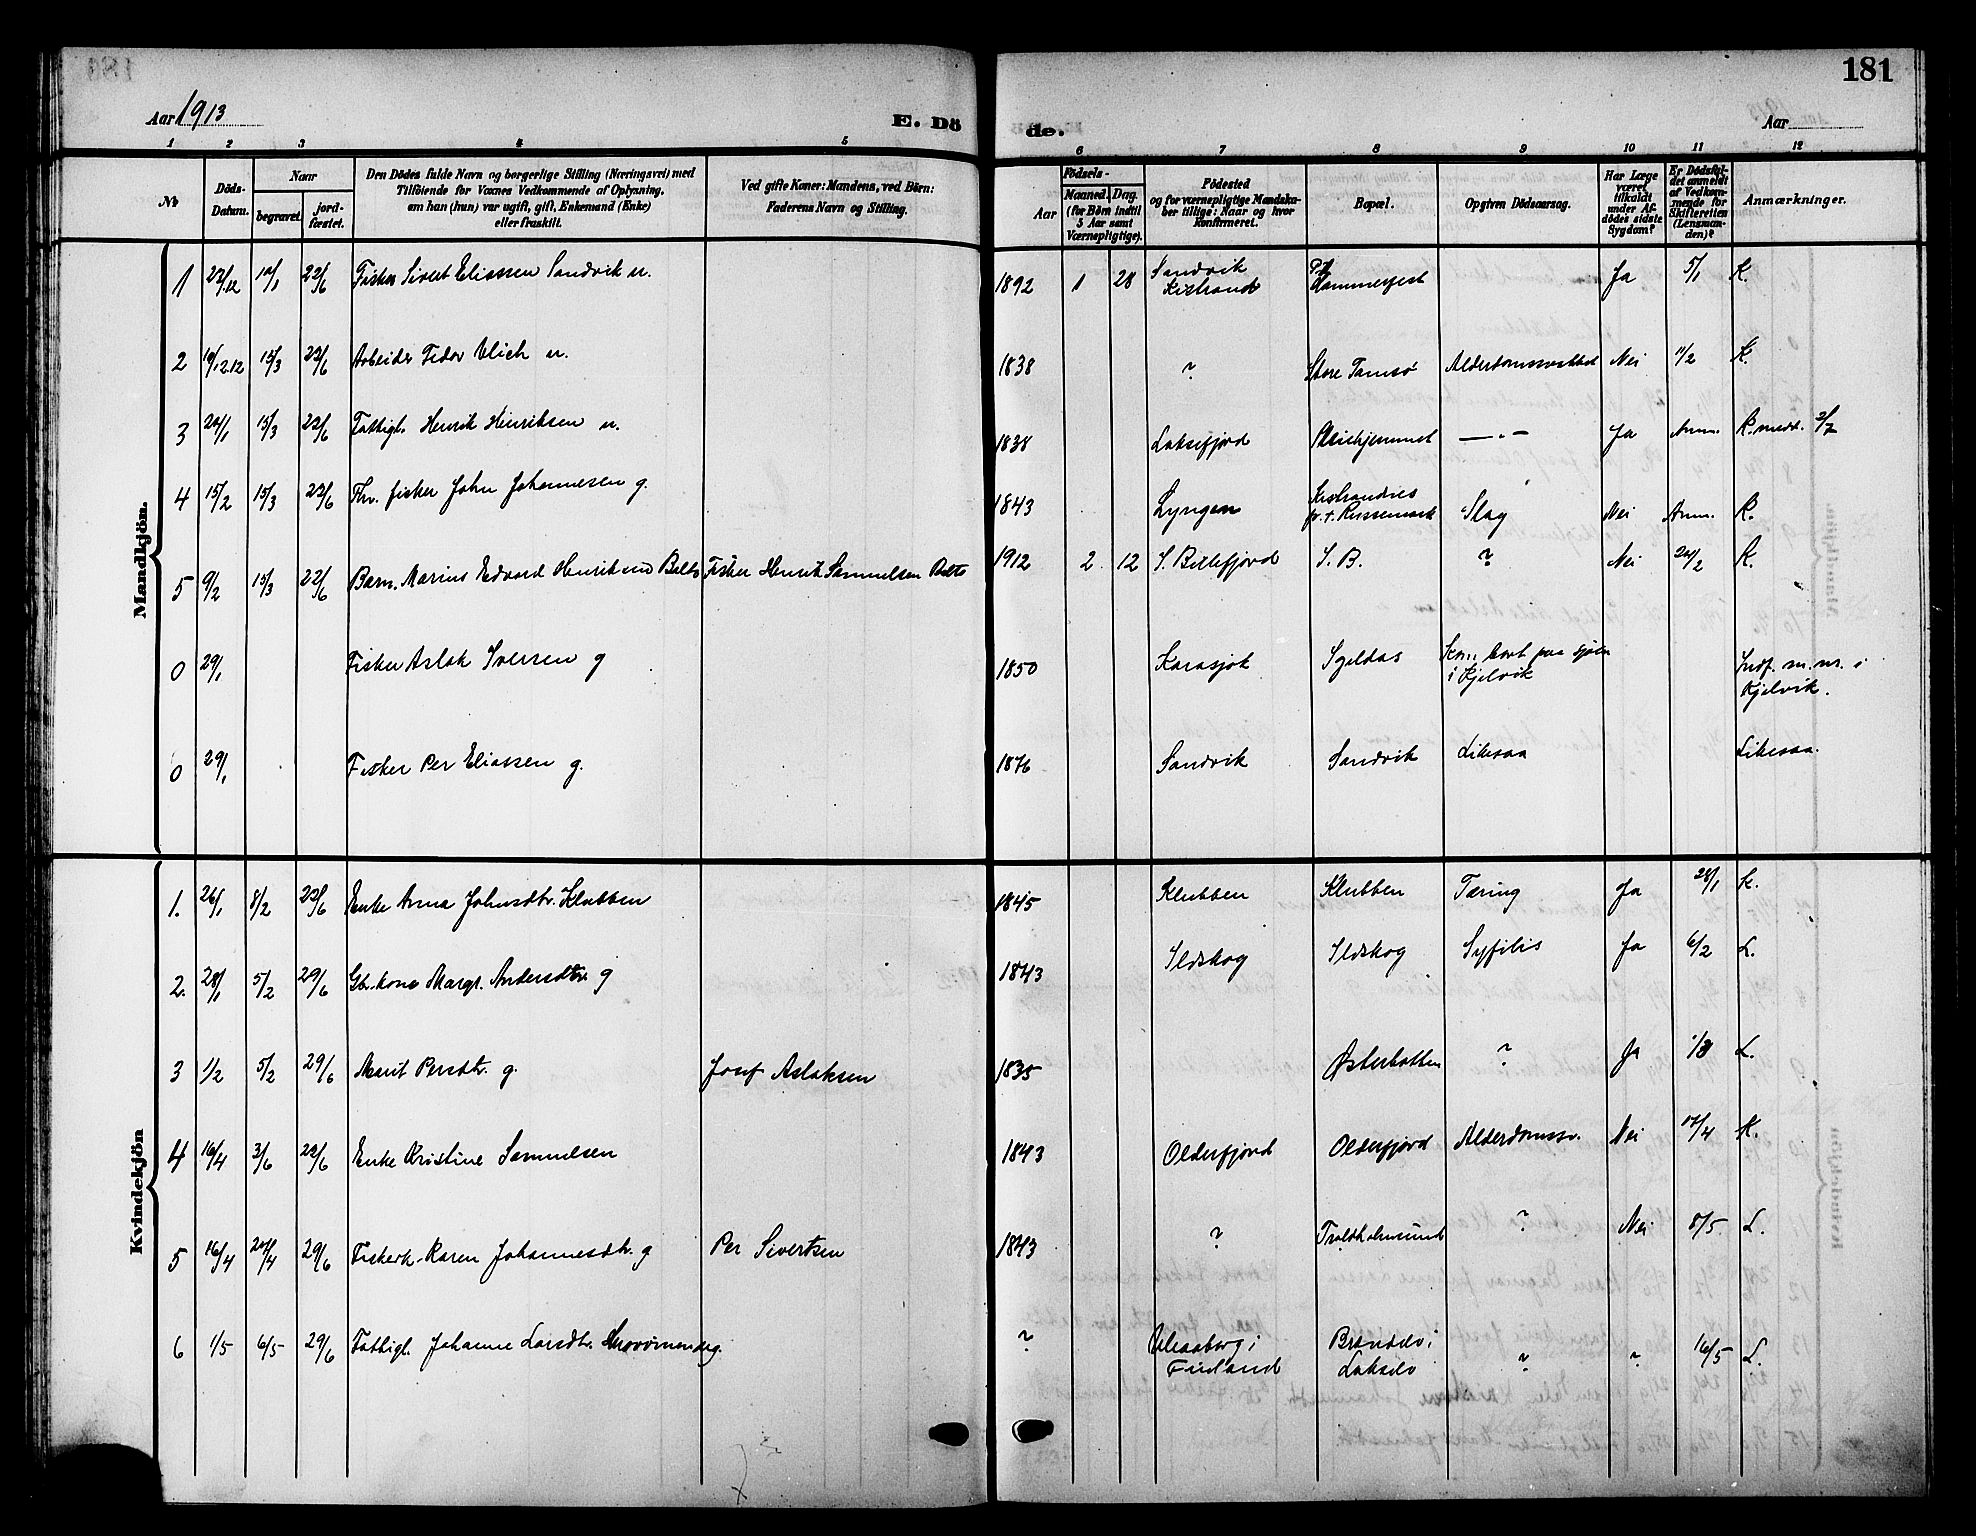 181
Aar 1913
E. Dö de.
Aar
1 2 3 4 5 6 7 8 9 10 11 12
№
Döds-Datum.
Naar
begravet.
jordfæstet.
Den Dödes fulde Navn og borgerlige Stilling (Næringsvei) med
Tilföiende for Voxnes Vedkommende af Oplysning,
om han (hun) var ugift, gift, Enkemand (Enke)
eller fraskilt.
Ved gifte Koner: Mandens, ved Börn:
Faderens Navn og Stilling.
Födsels-
Aar
Maaned. Dag.
(for Börn indtil
5 Aar samt
Værnepligtige).
Födested
og for værnepligtige Mandska-
ber tillige: Naar og hvor
Konfirmeret.
Bopæl.
Opgiven Dödsaarsag.
Har Læge
været
tilkaldt
under Af-
dödes sidste
Sygdom?
Er Dödsfal-
det anmeldt
af Vedkom-
mende for
Skifteretten
(Lensman-
den)?
Anmærkninger.
Mandkjön.
1 Fisker Sivert Eliassen Sandvik u. 1892 1 28 Sandvik Kistrand Hammerfest Ja 5/1 K.
2 15/3 22/6 Arbeider Fedor Ulich u. 1838 ? Store Tamsö Nei 11/2 K.
3 15/3 22/6 Fattigl. Henrik Henriksen u. 1838 Laksefjord Pleiehjemmet —„— Ja Anm. K.
4 15/2 15/3 22/6 Fhv. fisker John Johannesen g. 1843 Lyngen Slag Nei Anm. K.
5 9/2 15/3 22/6 Barn. Marius Edvard Henriksen Balto Fisker Henrik Samuelsen Balto 1912 2 12 S. Billefjord S. B. ? Nei K.
0 29/1 Fisker Aslak Iversen g 1850 Karasjok Igeldas Kom bort paa sjöen i Kjelvik Indf. m. nr. i Kjelvik.
0 29/1 Fisker Per Eliassen g. 1876 Sandvik Sandvik Likesaa Likesaa.
Kvindekjön
1. 26/1 8/2 22/6 Enke Anna Johnsdtr. Klubben 1845 Klubben Klubben Tæring Ja 28/1 K.
2. 28/1 5/2 29/6 Gbr.kone Margr. Andersdtr. g 1843 Ildskog Ildskog Syfilis Ja 6/2 L.
3 1/2 5/2 29/6 Marit Persdtr. g. Josef Aslaksen 1835 Østerbotten ? Ja L.
4 16/4 3/6 22/6 Enke Kristine Samuelsen 1843 Olderfjord Olderfjord Alderdomssv. Nei 17/4 K.
5 16/4 29/6 Fiskerk. Karen Johannesdtr. g Per Sivertsen 1843 ? Troldholmsund ? Nei 8/5. L.
6 1/5 6/5 29/6 Fattigl. Johanne Larsdtr. ? Uleaaborg i Finland Brændelv i Lakselv ? ? 16/5 L.